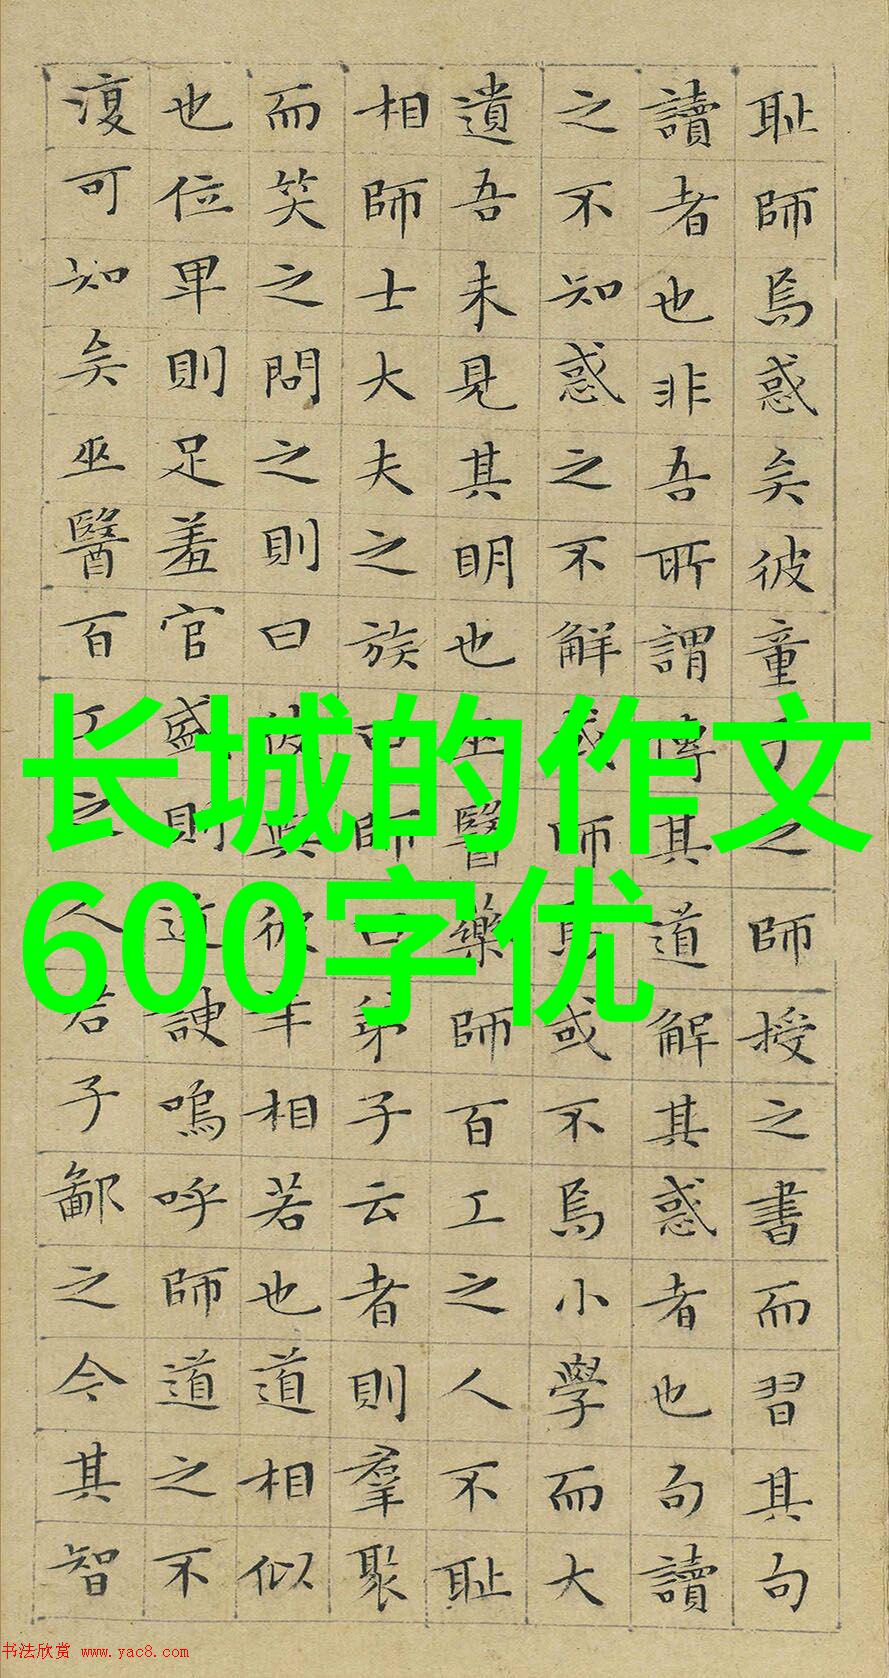 耻師焉惑矣彼童子之師授之書而習其句
讀者也非吾所謂傳其道解其惑者也句讀
之不知惑之不解或師焉或不焉小學而大
遺吾未見其明也巫醫藥師百工之人不耻
相師士大夫之族曰師曰弟子云者則羣聚
而笑之問之則曰彼與彼年相若也道相似
也位卑則足羞官盛則近諛嗚呼師道之不
復可知矣巫醫百工之人君子鄙之今其智
长城的作文
600字优
书法欣赏 www.yac8.com